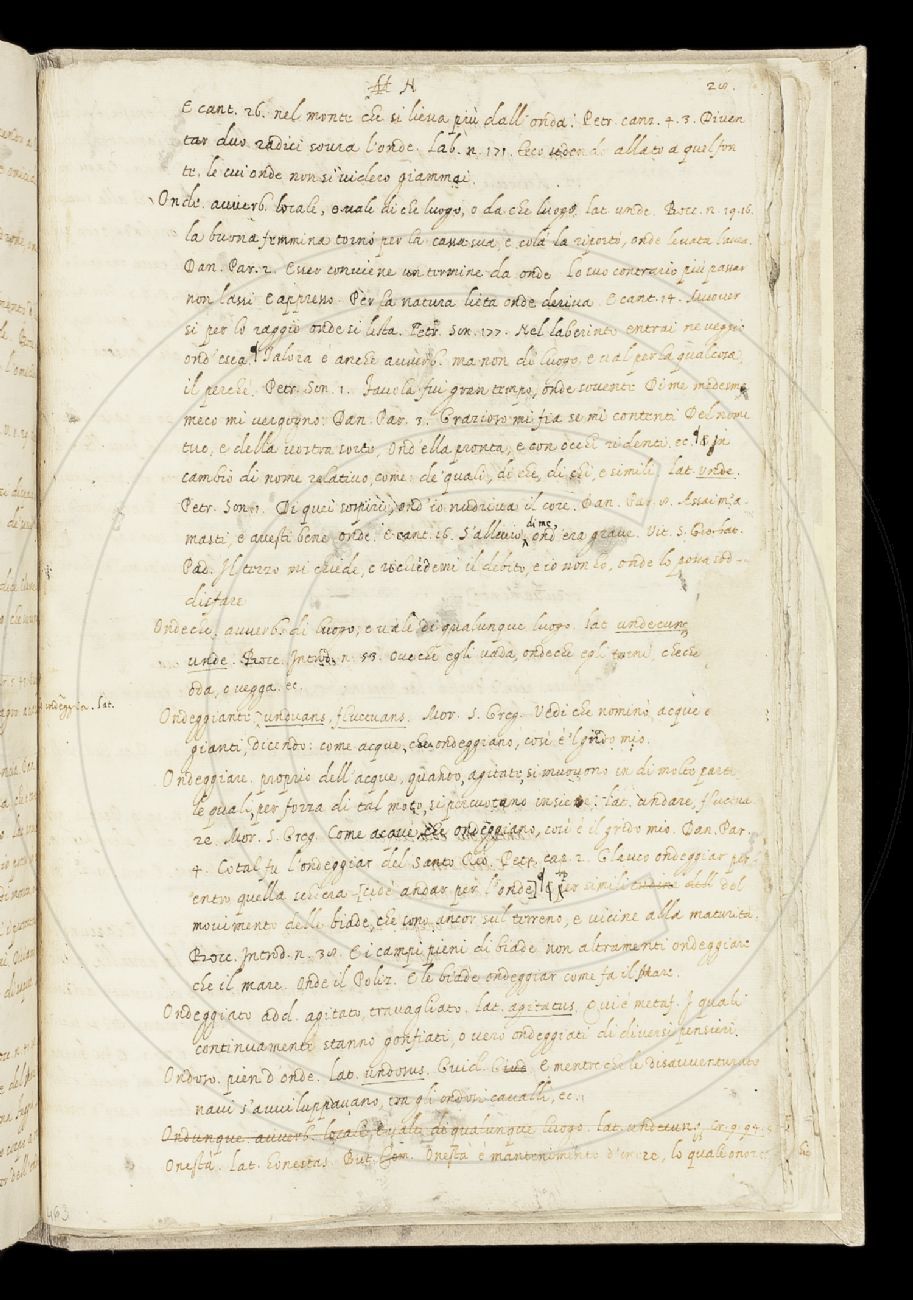 N
E cant. 26. nel monte che si lieva più dall'onda. Petr. canz. 4. 3. Diven
tar duo radici sovra l'onde. Lab. n. 171. Ecco vedendo allato a quel fon
te, le cui onde non si videro giammai.
Onde. avverb. locale, e vale di che luogo, o da che luogo, lat. unde. Bocc. n. 19. 16.
la buona femmina tornò per la cassa sua, e colà la riportò, onde levata l'avea.
Dan. Par. 2. Esser conviene un termine da onde Lo suo contrario più passar
non lassi E appresso. Per la natura lieta onde deriva E cant. 14.
si per lo raggio onde si lista. Petr. Son. 177. Nel laberinto entrai ne veggio
ond'esca. Talora è anche avverb. ma non di luogo, e val per la qualcosa,
il perchè. Petr. Son. 1. Favola fui gran tempo, onde sovente Di me medesmo
meco mi vergogno. Dan. Par. 3. Grazioso mi fia se mi contenti Del nome
tuo, e della vostra sorte, Ond'ella pronta, e con occhi ridenti. ec. § In
cambio di nome relativo, come: de' quali, di che, di chi, e simili, lat. unde.
Petr. Son. 1. Di quei sospiri, ond'io nudriva il core. Dan. Par. 8. Assai m'a-
masti, e avesti bene onde. E cant. 16. S'alleviò di me, ond'era grave. Vit. S. Gio. bat.
Pad. Il terzo mi chiede, e richiedemi il debito, e io non ho, onde lo possa sod-
disfare
Ondeche, avverb. di luogo, e vale di qualunque luogo. lat. undecunq
unde. Bocc. Introd. n. 53. Ove che egli vada, ondeche egli torni, cheche
oda, o vegga. ec.
Ondeggiante, undans, fluctuans. Mor. S. Greg. Vedi che nominò acque o
gianti, dicendo: come acque, che ondeggiano, così è 'l grido mio.
Ondeggiare. proprio dell'acque, quando, agitate, si muovono in di molte parti
le quali, per forza di tal moto, si percuotano insieme: lat. undare, fluctua
re. Mor. S. Greg. Come acque, che ondeggiano, così è il grido mio. Dan. Par.
4. Cotal fu l'ondeggiar del santo Rio. Petr. cap. 2. Glauco ondeggiar per
entro quella schiera [cioè andar per l'onde] § Per simili del
movimento delle biade, che sono ancor sul terreno, e vicine alla maturità.
Bocc. Introd. n. 38. E i campi pieni di biade non altramenti ondeggiare
che il mare. Onde il Poliz. E le biade ondeggiar come fa il mare.
Ondeggiato add. agitato, travagliato. lat. agitatus, e qui è metaf. I quali
continuamente stanno gonfiati, o vero ondeggiati di diversi pensieri.
Ondoso. pien d'onde. lat. undosus. Guid. Giud. E mentre che le disavventurate
navi s'avviluppavano, tra gli ondosi cavalli, ec.
Ondunque avverb. locale, e vale di qualunque luogo. lat. undecunq, Cr. 9. 94.
Onestà. lat. honestas. But. Com. Onestà è mantenimento d'onore, lo quale onore